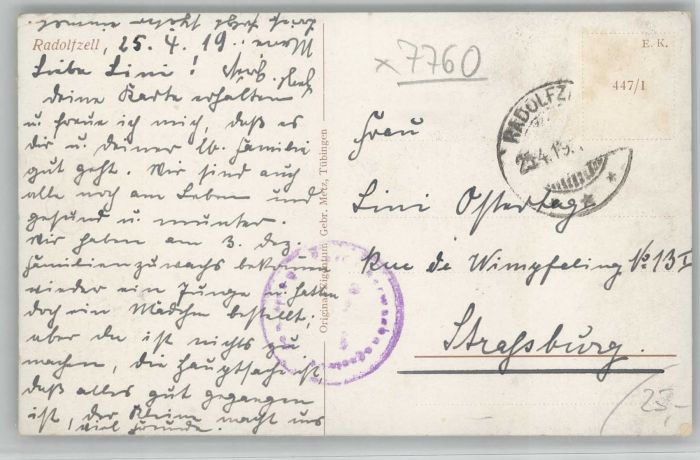 Radolfzell, 25. 4. 19.
Liebe Lini!
deine Karte erhalten
u. freue ich mich, daß es
dir u. deiner lb. Familie
gut geht. Wir sind auch
alle noch am Leben und
gesund u. munter.
Wir haben am 3. Dez.
Familienzuwachs bekommen
wieder ein Junge u. hatten
doch ein Mädchen bestellt,
aber da ist nichts zu
machen, die Hauptsache ist
daß alles gut gegangen
ist, der Kleine macht uns
viel Freude.
Original-Eigentum Gebr. Metz, Tübingen
x 7760
E. K.
447/1
RADOLFZ
25.4.19.
Frau
Lini Ostertag
Rue de Wimpfeling No 13 I
Strassburg.
25,-